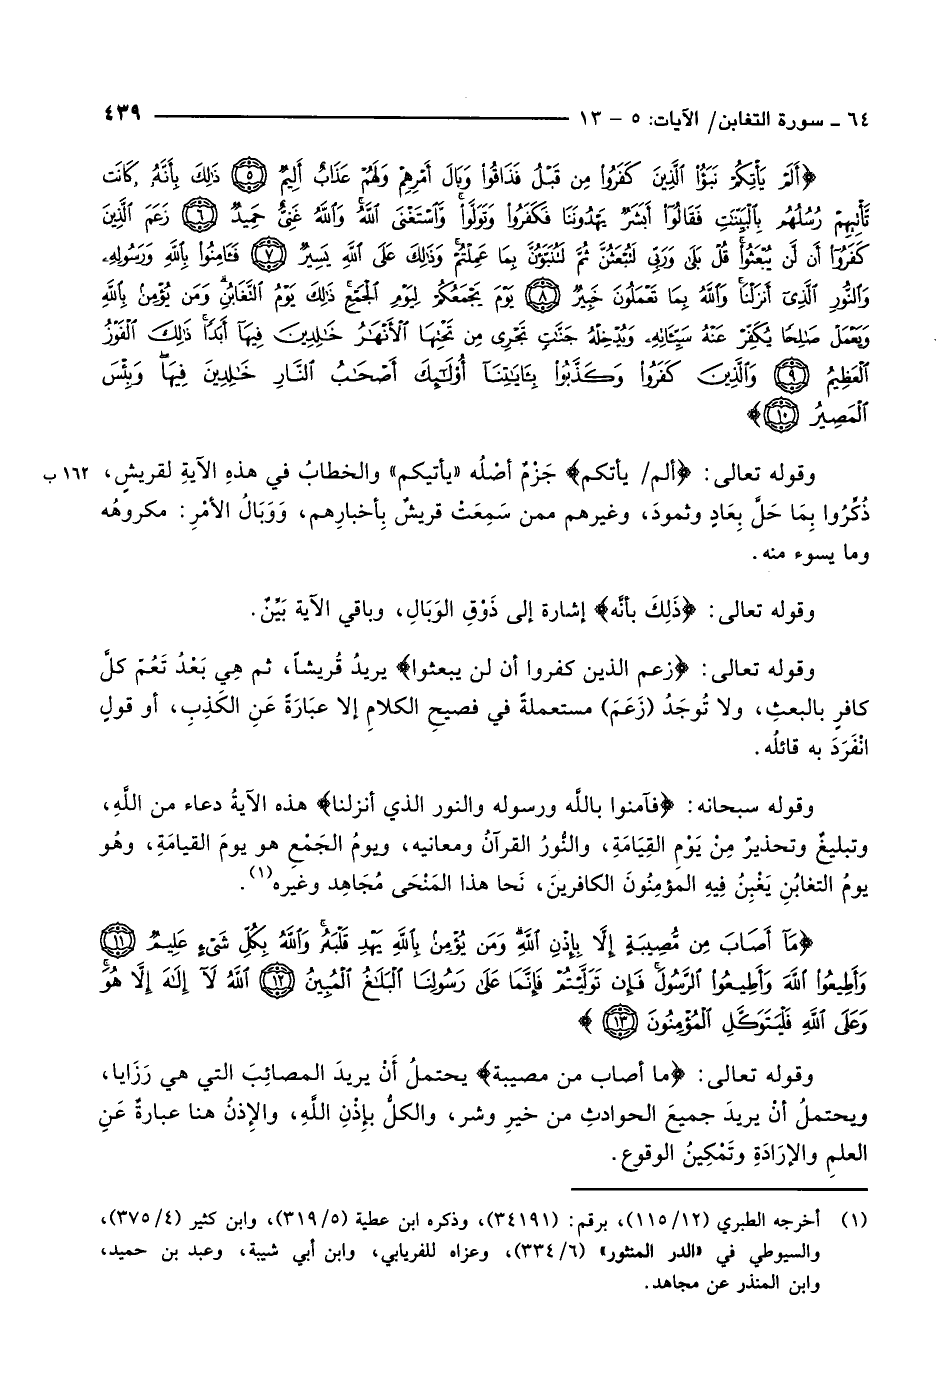 ٦٤ ـ سورة التغابن/ الآيات: ٥ - ١٣ ٤٣٩
﴿أَلَمْ يَأْتِكُمْ نَبَؤُا الَّذِينَ كَفَرُوا مِن قَبْلُ فَذَاقُوا وَبَالَ أَمْرِهِمْ وَلَهُمْ عَذَابٌ أَلِيمٌ ﴿٥﴾ ذَلِكَ بِأَنَّهُ كَانَت
تَّأْتِيهِمْ رُسُلُهُم بِالْبَيِّنَتِ فَقَالُوا أَبَشَرٌ يَهْدُونَنَا فَكَفَرُوا وَتَوَلَّوا وَّاسْتَغْنَى اللَّهُ وَاللَّهُ غَنِيٌّ حَمِيدٌ ﴿٦﴾ زَعَمَ الَّذِينَ
كَفَرُوا أَن لَّن يُبْعَثُوا قُلْ بَلَى وَرَبِّي لَتُبْعَثُنَّ ثُمَّ لَتُنَبَّؤُنَّ بِمَا عَمِلْتُمْ وَذَلِكَ عَلَى اللَّهِ يَسِيرٌ ﴿٧﴾ فَـَامِنُوا بِاللَّهِ وَرَسُولِهِ
وَالنُّورِ الَّذِي أَنزَلْنَا وَاللَّهُ بِمَا تَعْمَلُونَ خَبِيرٌ ﴿٨﴾ يَوْمَ يَجْمَعُكُمْ لِيَوْمِ الْجَمْعِ ذَلِكَ يَوْمُ التَّغَابُنِ وَمَن يُؤْمِنْ بِاللَّهِ
وَيَعْمَلْ صَالِحًا يُكَفِّرْ عَنْهُ سَيِّئَاتِهِ وَيُدْخِلْهُ جَنَّتٍ تَجْرِي مِن تَحْتِهَا الْأَنْهَارُ خَالِدِينَ فِيهَا أَبَدًا ذَلِكَ الْفَوْزُ
الْعَظِيمُ ﴿٩﴾ وَالَّذِينَ كَفَرُوا وَكَذَّبُوا بِـَايَاتِنَا أُوْلَئِكَ أَصْحَابُ النَّارِ خَالِدِينَ فِيهَا وَبِئْسَ
الْمَصِيرُ ﴿١٠﴾﴾
وقوله تعالى: ﴿ألم/ يأتكم﴾ جَزْمٌ أصْلُه «يأتيكم» والخطابُ في هذهِ الآيةِ لقريشٍ، ١٦٢ ب
ذُكِّرُوا بِمَا حَلَّ بِعَادٍ وثمودَ، وغيرهم ممن سَمِعَتْ قريشٌ بأخبارِهم، وَوَبَالُ الأمْرِ: مكروهُه
وما يسوء منه.
وقوله تعالى: ﴿ذَلِكَ بأنَّه﴾ إشارة إلى ذَوْقِ الوَبَالِ، وباقي الآية بَيِّنٌ.
وقوله تعالى: ﴿زعم الذين كفروا أن لن يبعثوا﴾ يريدُ قُريشاً، ثم هِي بَعْدُ تَعُمّ كلَّ
كافرٍ بالبعثِ، ولا تُوجَدُ (زَعَمَ) مستعملةً في فصيحِ الكلامِ إلا عبَارَةً عَنِ الكَذِبِ، أو قولٍ
انْفَرَدَ به قائلُه.
وقوله سبحانه: ﴿فآمنوا باللَّه ورسوله والنور الذي أنزلنا﴾ هذه الآيةُ دعاء من اللَّهِ،
وتبليغٌ وتحذيرٌ مِنْ يَوْمِ القِيَامَةِ، والنُّورُ القرآنُ ومعانيه، ويومُ الجَمْعِ هو يومَ القيامَةِ، وهُو
يومُ التغابُنِ يَغْبِنُ فيهِ المؤمِنُونَ الكافرينَ، نَحا هذا المَنْحَى مُجَاهِد وغيره(١).
﴿مَا أَصَابَ مِن مُّصِيبَةٍ إِلَّا بِإِذْنِ اللَّهِ وَمَن يُؤْمِنْ بِاللَّهِ يَهْدِ قَلْبَهُ وَاللَّهُ بِكُلِّ شَيْءٍ عَلِيمٌ ﴿١١﴾
وَأَطِيعُوا اللَّهَ وَأَطِيعُوا الرَّسُولَ فَإِن تَوَلَّيْتُمْ فَإِنَّمَا عَلَى رَسُولِنَا الْبَلَغُ الْمُبِينُ ﴿١٢﴾ اللَّهُ لَا إِلَهَ إِلَّا هُوَ
وَعَلَى اللَّهِ فَلْيَتَوَكَّلِ الْمُؤْمِنُونَ ﴿١٣﴾﴾
وقوله تعالى: ﴿ما أصاب من مصيبة﴾ يحتملُ أَنْ يريدَ المصائِبَ التي هي رَزَايا،
ويحتملُ أنْ يريدَ جميعَ الحوادثِ من خيرٍ وشر، والكلُّ بإذْنِ اللَّهِ، والإذنُ هنا عبارةٌ عَنِ
العلمِ والإرَادَةِ وتَمْكِينُ الوقوعِ.
(١) أخرجه الطبري (١١٥/١٢)، برقم: (٣٤١٩١)، وذكره ابن عطية (٣١٩/٥)، وابن كثير (٣٧٥/٤)،
والسيوطي في «الدر المنثور» (٣٣٤/٦)، وعزاه للفريابي، وابن أبي شيبة، وعبد بن حميد،
وابن المنذر عن مجاهد.